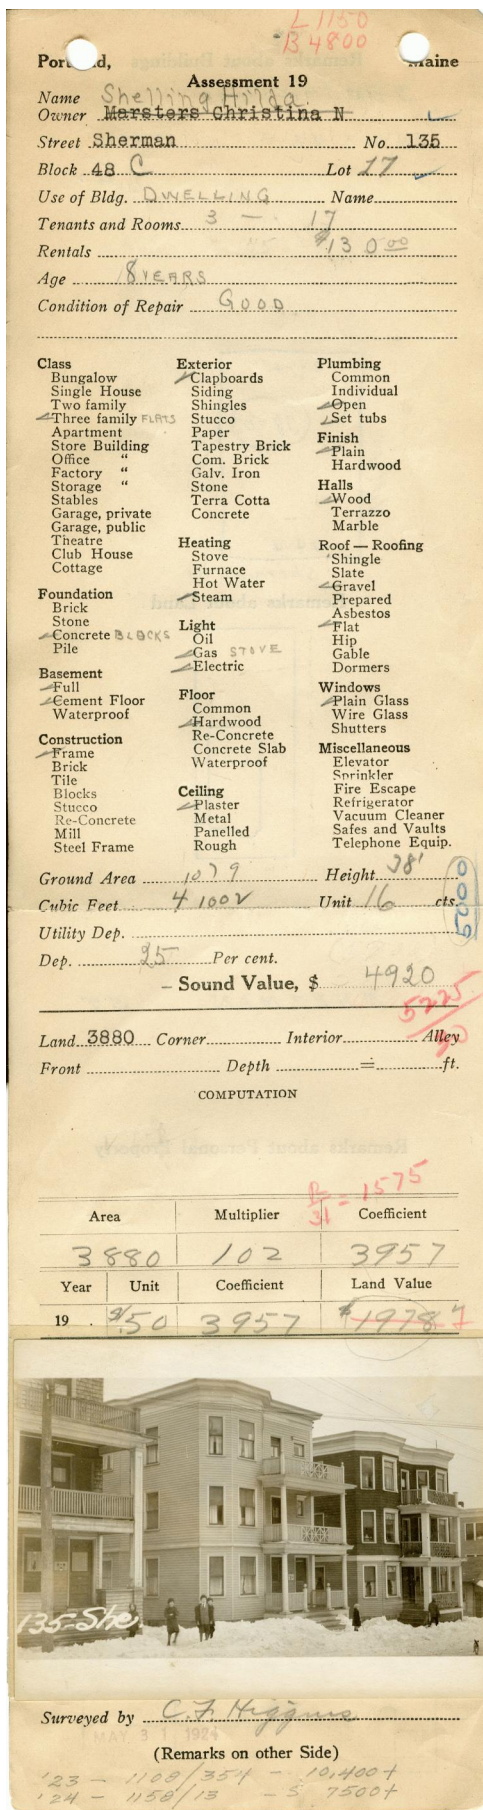 L 1150
B 4800
Portland, Maine
Assessment 19
Name Shelling Hilda
Owner Marsters Christina N
Street Sherman No. 135
Block 48 C Lot 17
Use of Bldg. DWELLING Name
Tenants and Rooms 3 — 17
Rentals $130 00
Age 18 YEARS
Condition of Repair GOOD
Class
Bungalow
Single House
Two family
Three family FLATS
Apartment
Store Building
Office "
Factory "
Storage "
Stables
Garage, private
Garage, public
Theatre
Club House
Cottage
Foundation
Brick
Stone
Concrete BLOCKS
Pile
Basement
Full
Cement Floor
Waterproof
Construction
Frame
Brick
Tile
Blocks
Stucco
Re-Concrete
Mill
Steel Frame
Exterior
Clapboards
Siding
Shingles
Stucco
Paper
Tapestry Brick
Com. Brick
Galv. Iron
Stone
Terra Cotta
Concrete
Heating
Stove
Furnace
Hot Water
Steam
Light
Oil
Gas STOVE
Electric
Floor
Common
Hardwood
Re-Concrete
Concrete Slab
Waterproof
Ceiling
Plaster
Metal
Panelled
Rough
Plumbing
Common
Individual
Open
Set tubs
Finish
Plain
Hardwood
Halls
Wood
Terrazzo
Marble
Roof — Roofing
Shingle
Slate
Gravel
Prepared
Asbestos
Flat
Hip
Gable
Dormers
Windows
Plain Glass
Wire Glass
Shutters
Miscellaneous
Elevator
Sprinkler
Fire Escape
Refrigerator
Vacuum Cleaner
Safes and Vaults
Telephone Equip.
Ground Area 1079 Height 38'
Cubic Feet 41002 Unit 16 cts.
Utility Dep.
Dep. 25 Per cent.
– Sound Value, $ 4920
5225
Land 3880 Corner Interior Alley
Front Depth = ft.
COMPUTATION
= 1575
Area Multiplier Coefficient
3880 102 3957
Year Unit Coefficient Land Value
19 . $/.50 3957 $1978
135-She
Surveyed by C. F. Higgins
MAY 31 1924
(Remarks on other Side)
'23 – 1108/354 – 10,400+
'24 – 1158/13 – S 7500+